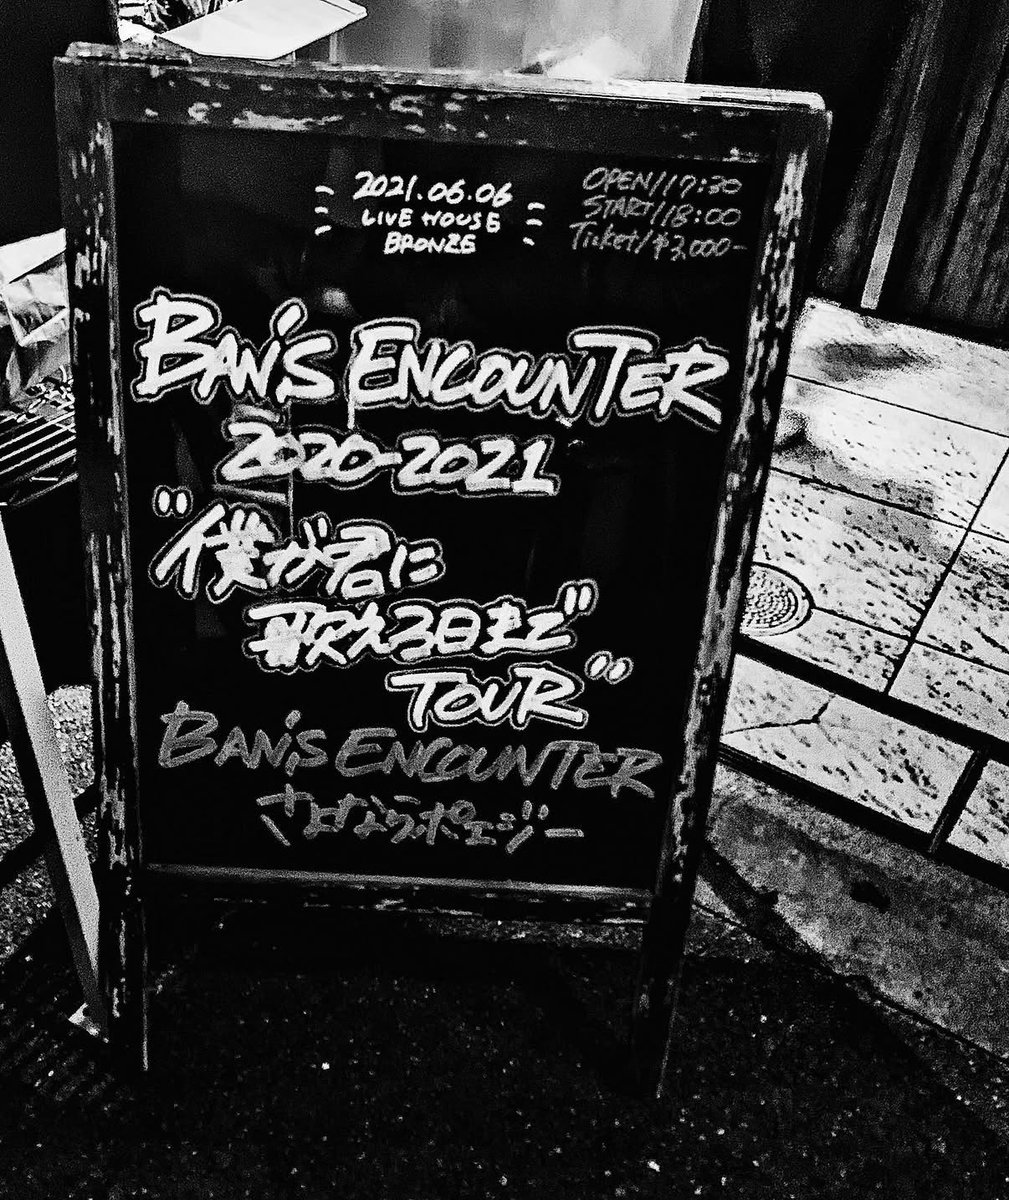 2021.06.06
LIVE HOUSE
BRONZE
OPEN/17:30
START/18:00
Ticket/¥3,000-
BAN'S ENCOUNTER
2020-2021
"僕が君に
歌える日まで"
TOUR"
BAN'S ENCOUNTER
さよならポエジー